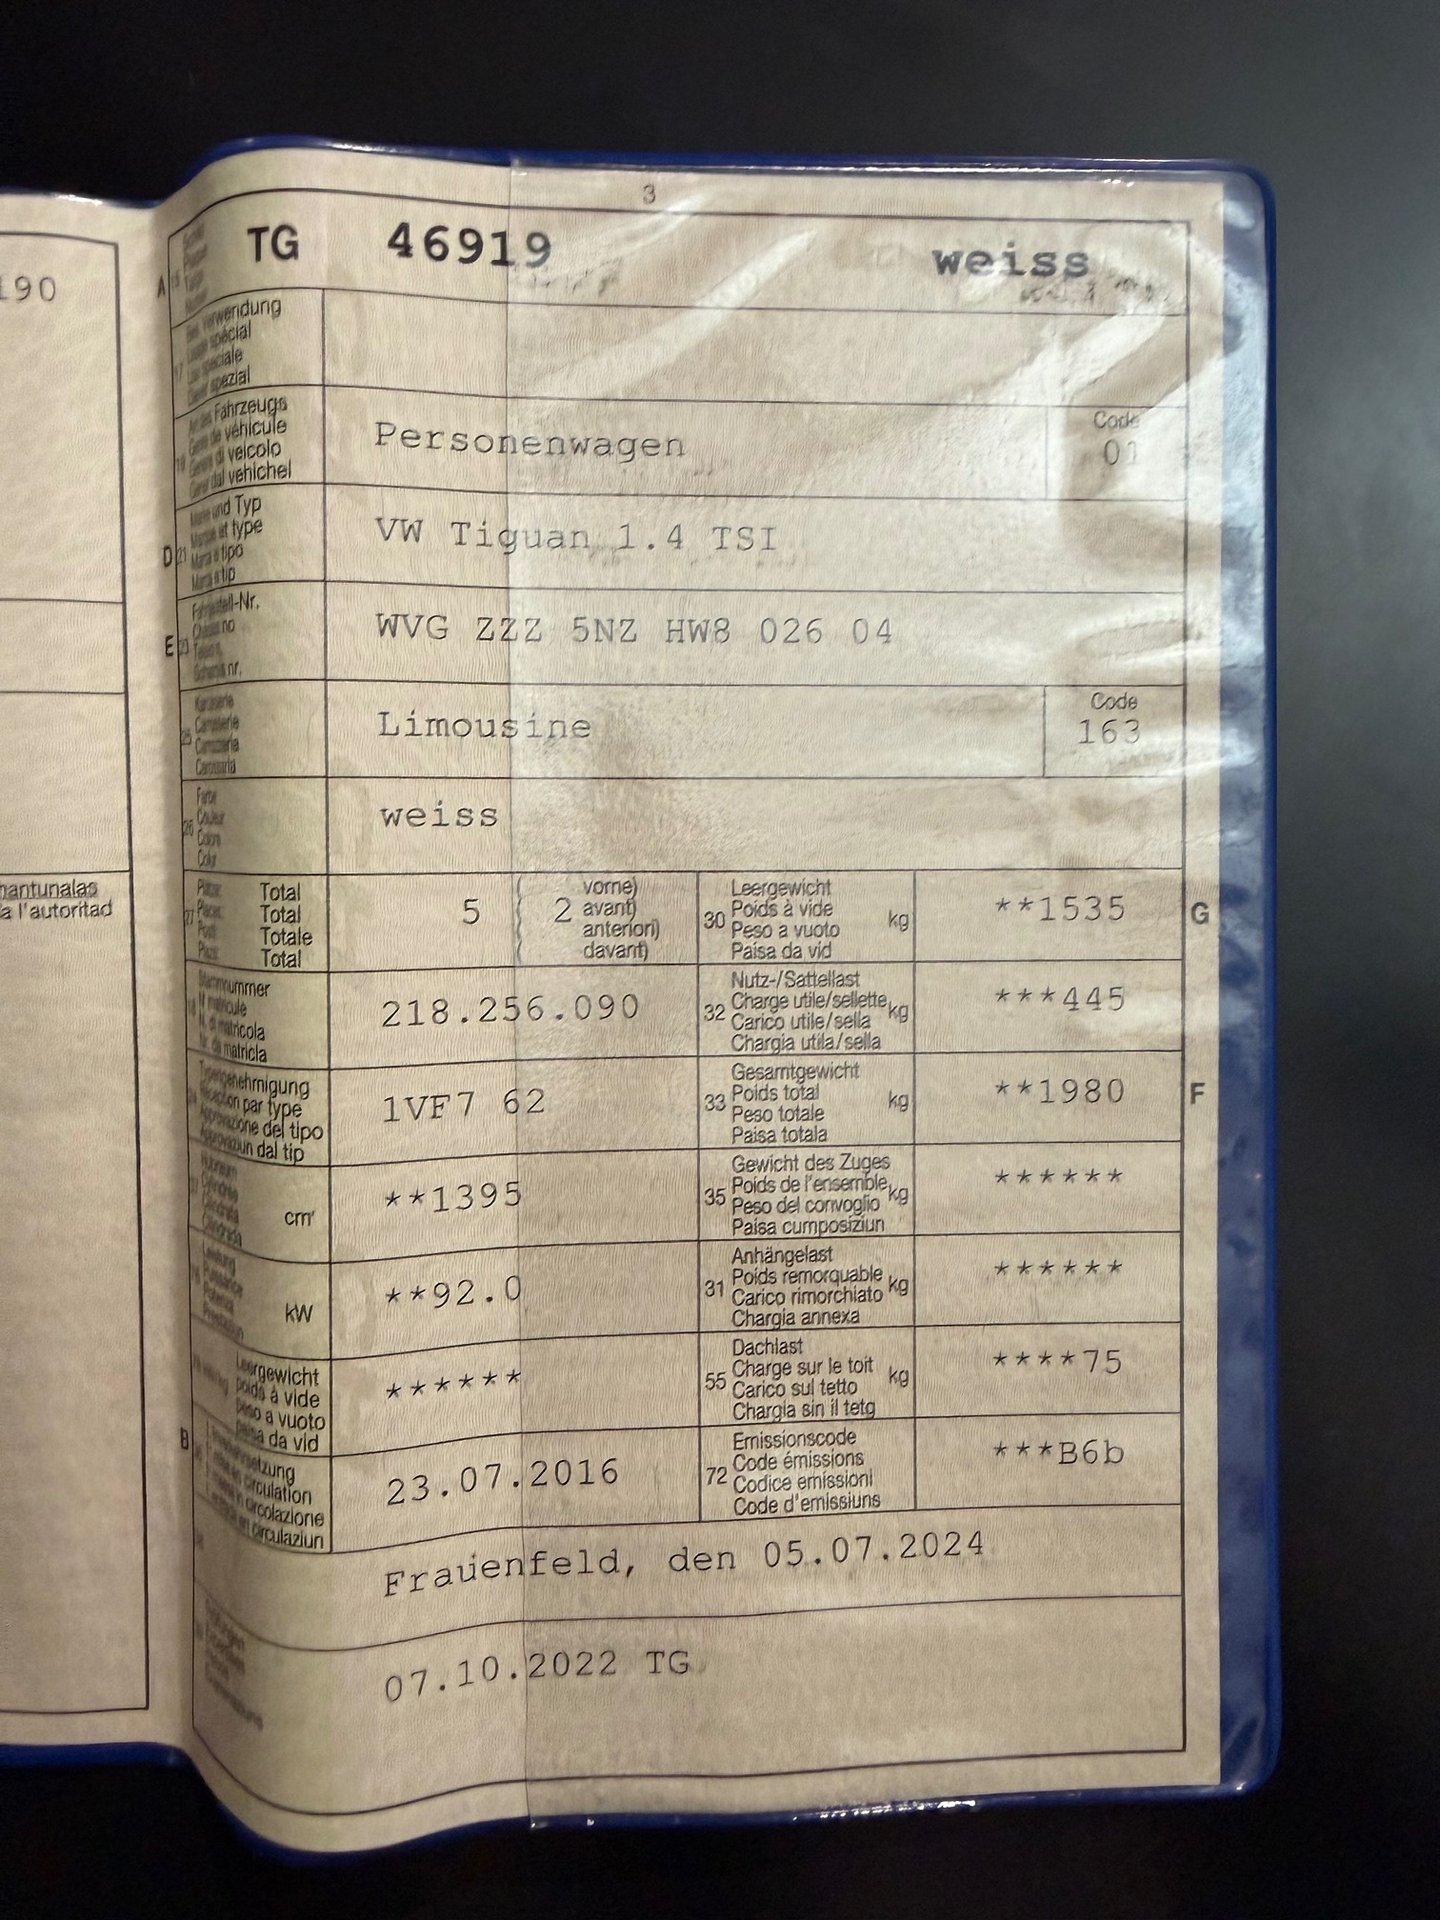 190
nantunalas
a l'autoritad
3
A 15 TG 46919 weiss
17 Bes. Verwendung
Usage spécial
Uso speciale
Diever spezial
19 Art des Fahrzeugs
Genre de véhicule
Genere di veicolo
Gener dal vehichel
Personenwagen
Code
01
D 21 Marke und Typ
Marque et type
Marca e tipo
Marca e tip
VW Tiguan 1.4 TSI
E 23 Fahrgestell-Nr.
Châssis no
Telaio n.
Schassis nr.
WVG ZZZ 5NZ HW8 026 04
25 Karosserie
Carrosserie
Carrozzeria
Carossaria
Limousine
Code
163
26 Farbe
Couleur
Colore
Colur
weiss
27 Plätze Total
Places Total
Posti Totale
Plazs Total
5
( 2 vorne)
( avant)
( anteriori)
( davant)
30 Leergewicht
Poids à vide
Peso a vuoto
Paisa da vid
kg
**1535
G
18 Stammnummer
N° matricule
N. di matricola
Nr. da matricla
218.256.090
32 Nutz-/Sattellast
Charge utile/sellette
Carico utile/sella
Chargia utila/sella
kg
***445
24 Typengenehmigung
Réception par type
Approvazione del tipo
Approvaziun dal tip
1VF7 62
33 Gesamtgewicht
Poids total
Peso totale
Paisa totala
kg
**1980
F
37 Hubraum
Cylindrée
Cilindrata
Cilindrada
cm³
**1395
35 Gewicht des Zuges
Poids de l'ensemble
Peso del convoglio
Paisa cumposiziun
kg
******
76 Leistung
Puissance
Potenza
Prestaziun
kW
**92.0
31 Anhängelast
Poids remorquable
Carico rimorchiato
Chargia annexa
kg
******
Leergewicht
poids à vide
peso a vuoto
paisa da vid
******
55 Dachlast
Charge sur le toit
Carico sul tetto
Chargia sin il tetg
kg
****75
B
circulation
circolazione
circulaziun
23.07.2016
72 Emissionscode
Code émissions
Codice emissioni
Code d'emissiuns
***B6b
Frauenfeld, den 05.07.2024
07.10.2022 TG